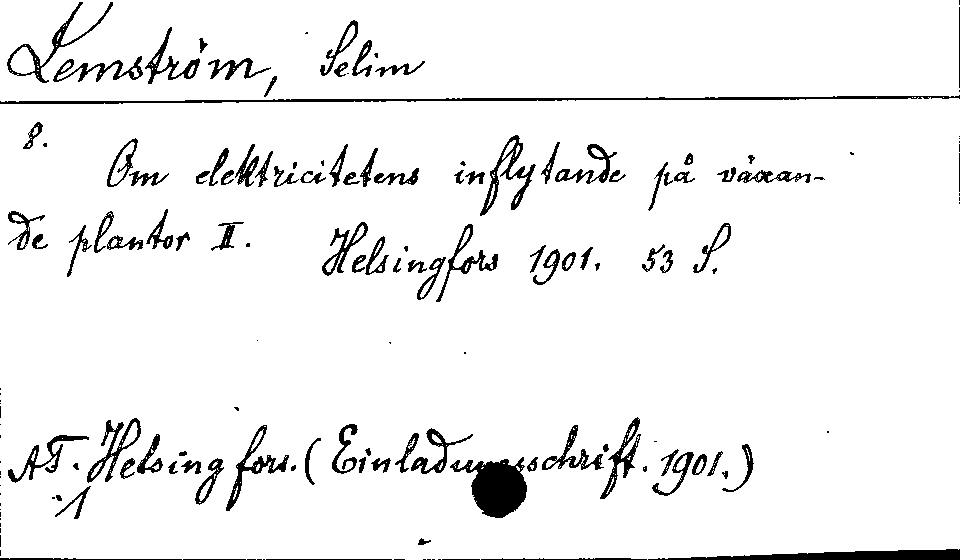 Lemström, Selim
8.
Om elektricitetens inflytande på växan-
de plantor II. Helsingfors 1901. 53 S.
AT. Helsingfors. (Einladungsschrift. 1901.)
1